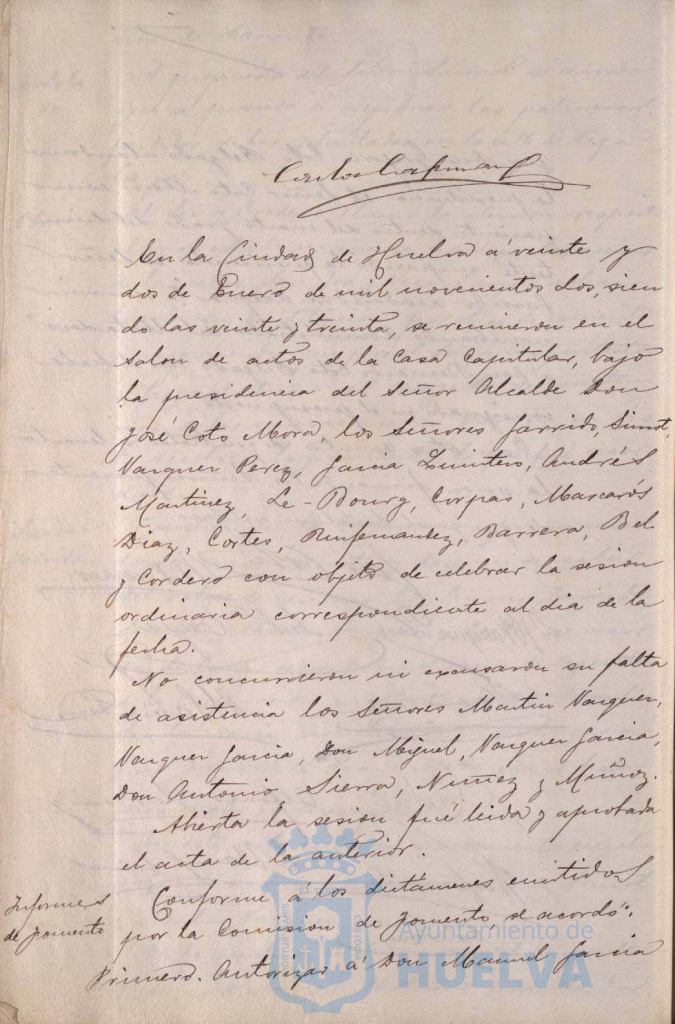 Carlos
En la Ciudad de Huelva á veinte y
dos de Enero de mil novecientos dos, sien
do las veinte y treinta, se reunieron en el
Salon de actos de la Casa Capitular, bajo
la presidencia del Señor Alcalde Don
José Coto Mora, los Señores Garrido,
Vazquez Perez, Garcia Quintero, Andrés
Martinez, Le-Bourg, Corpas, Mascarós
Diaz, Cortes, Ruifernandez, Barrera, Bel
y Cordero con objeto de celebrar la sesion
ordinaria correspondiente al dia de la
fecha.
No concurrieron ni excusaron su falta
de asistencia los Señores Martin Vazquez,
Vazquez Garcia, Don Miguel, Vazquez Garcia,
Don Antonio, Sierra, Nuñez y Muñoz.
Abierta la sesion fué leida y aprobada
el acta de la anterior.
Informes
de fomento
Conforme á los dictámenes emitidos
por la Comision de fomento se acordó:
Primero. Autorizar á Don Manuel Garcia
Ayuntamiento de
HUELVA